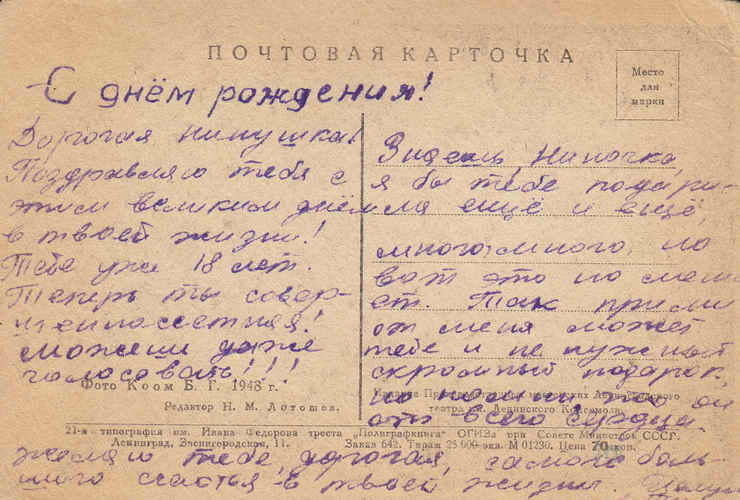 ПОЧТОВАЯ КАРТОЧКА
Место
для
марки
С днём рождения!
Дорогая Нинушка!
Поздравляю тебя с
этим великим днём
в твоей жизни!
Тебе уже 18 лет.
Теперь ты совер-
шеннолетняя!
Можешь даже
голосовать!!!
Знаешь, Ниночка,
я бы тебе подари-
ла ещё и ещё
много, много, но
вот это по
ет. Так прими
от меня может
тебе и не нужный
скромный подарок,
но он
от всего сердца.
Фото Коом Б. Г. 1948 г.
Редактор Н. М. Лотошев.
театра им. Ленинского Комсомола.
21-я типография им. Ивана Федорова треста „Полиграфкнига" ОГИЗа при Совете Министров СССР.
Ленинград, Звенигородская, 11. Заказ 642. Тираж 25 000 экз. М 01230. Цена 70 коп.
Желаю тебе, дорогая, самого боль-
шого счастья в твоей жизни.